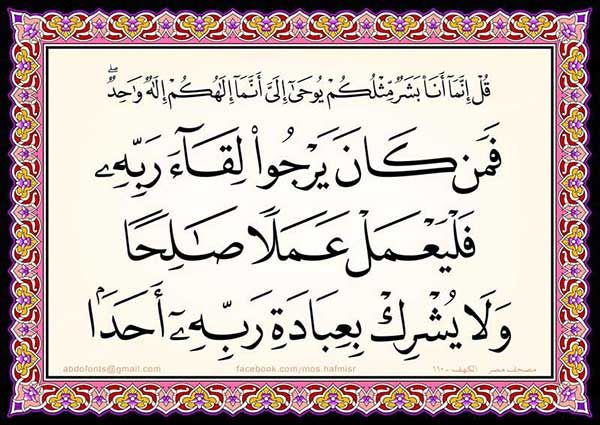 قُلْ إِنَّمَآ أَنَا۠ بَشَرٌ مِّثْلُكُمْ يُوحَىٰٓ إِلَىَّ أَنَّمَآ إِلَٰهُكُمْ إِلَٰهٌ وَٰحِدٌ ۖ
فَمَن كَانَ يَرْجُوا۟ لِقَآءَ رَبِّهِۦ
فَلْيَعْمَلْ عَمَلًا صَٰلِحًا
وَلَا يُشْرِكْ بِعِبَادَةِ رَبِّهِۦٓ أَحَدَۢا
مصحف مصر الكهف - ١١٠ facebook.com/mos.hafmisr abdofonts@gmail.com